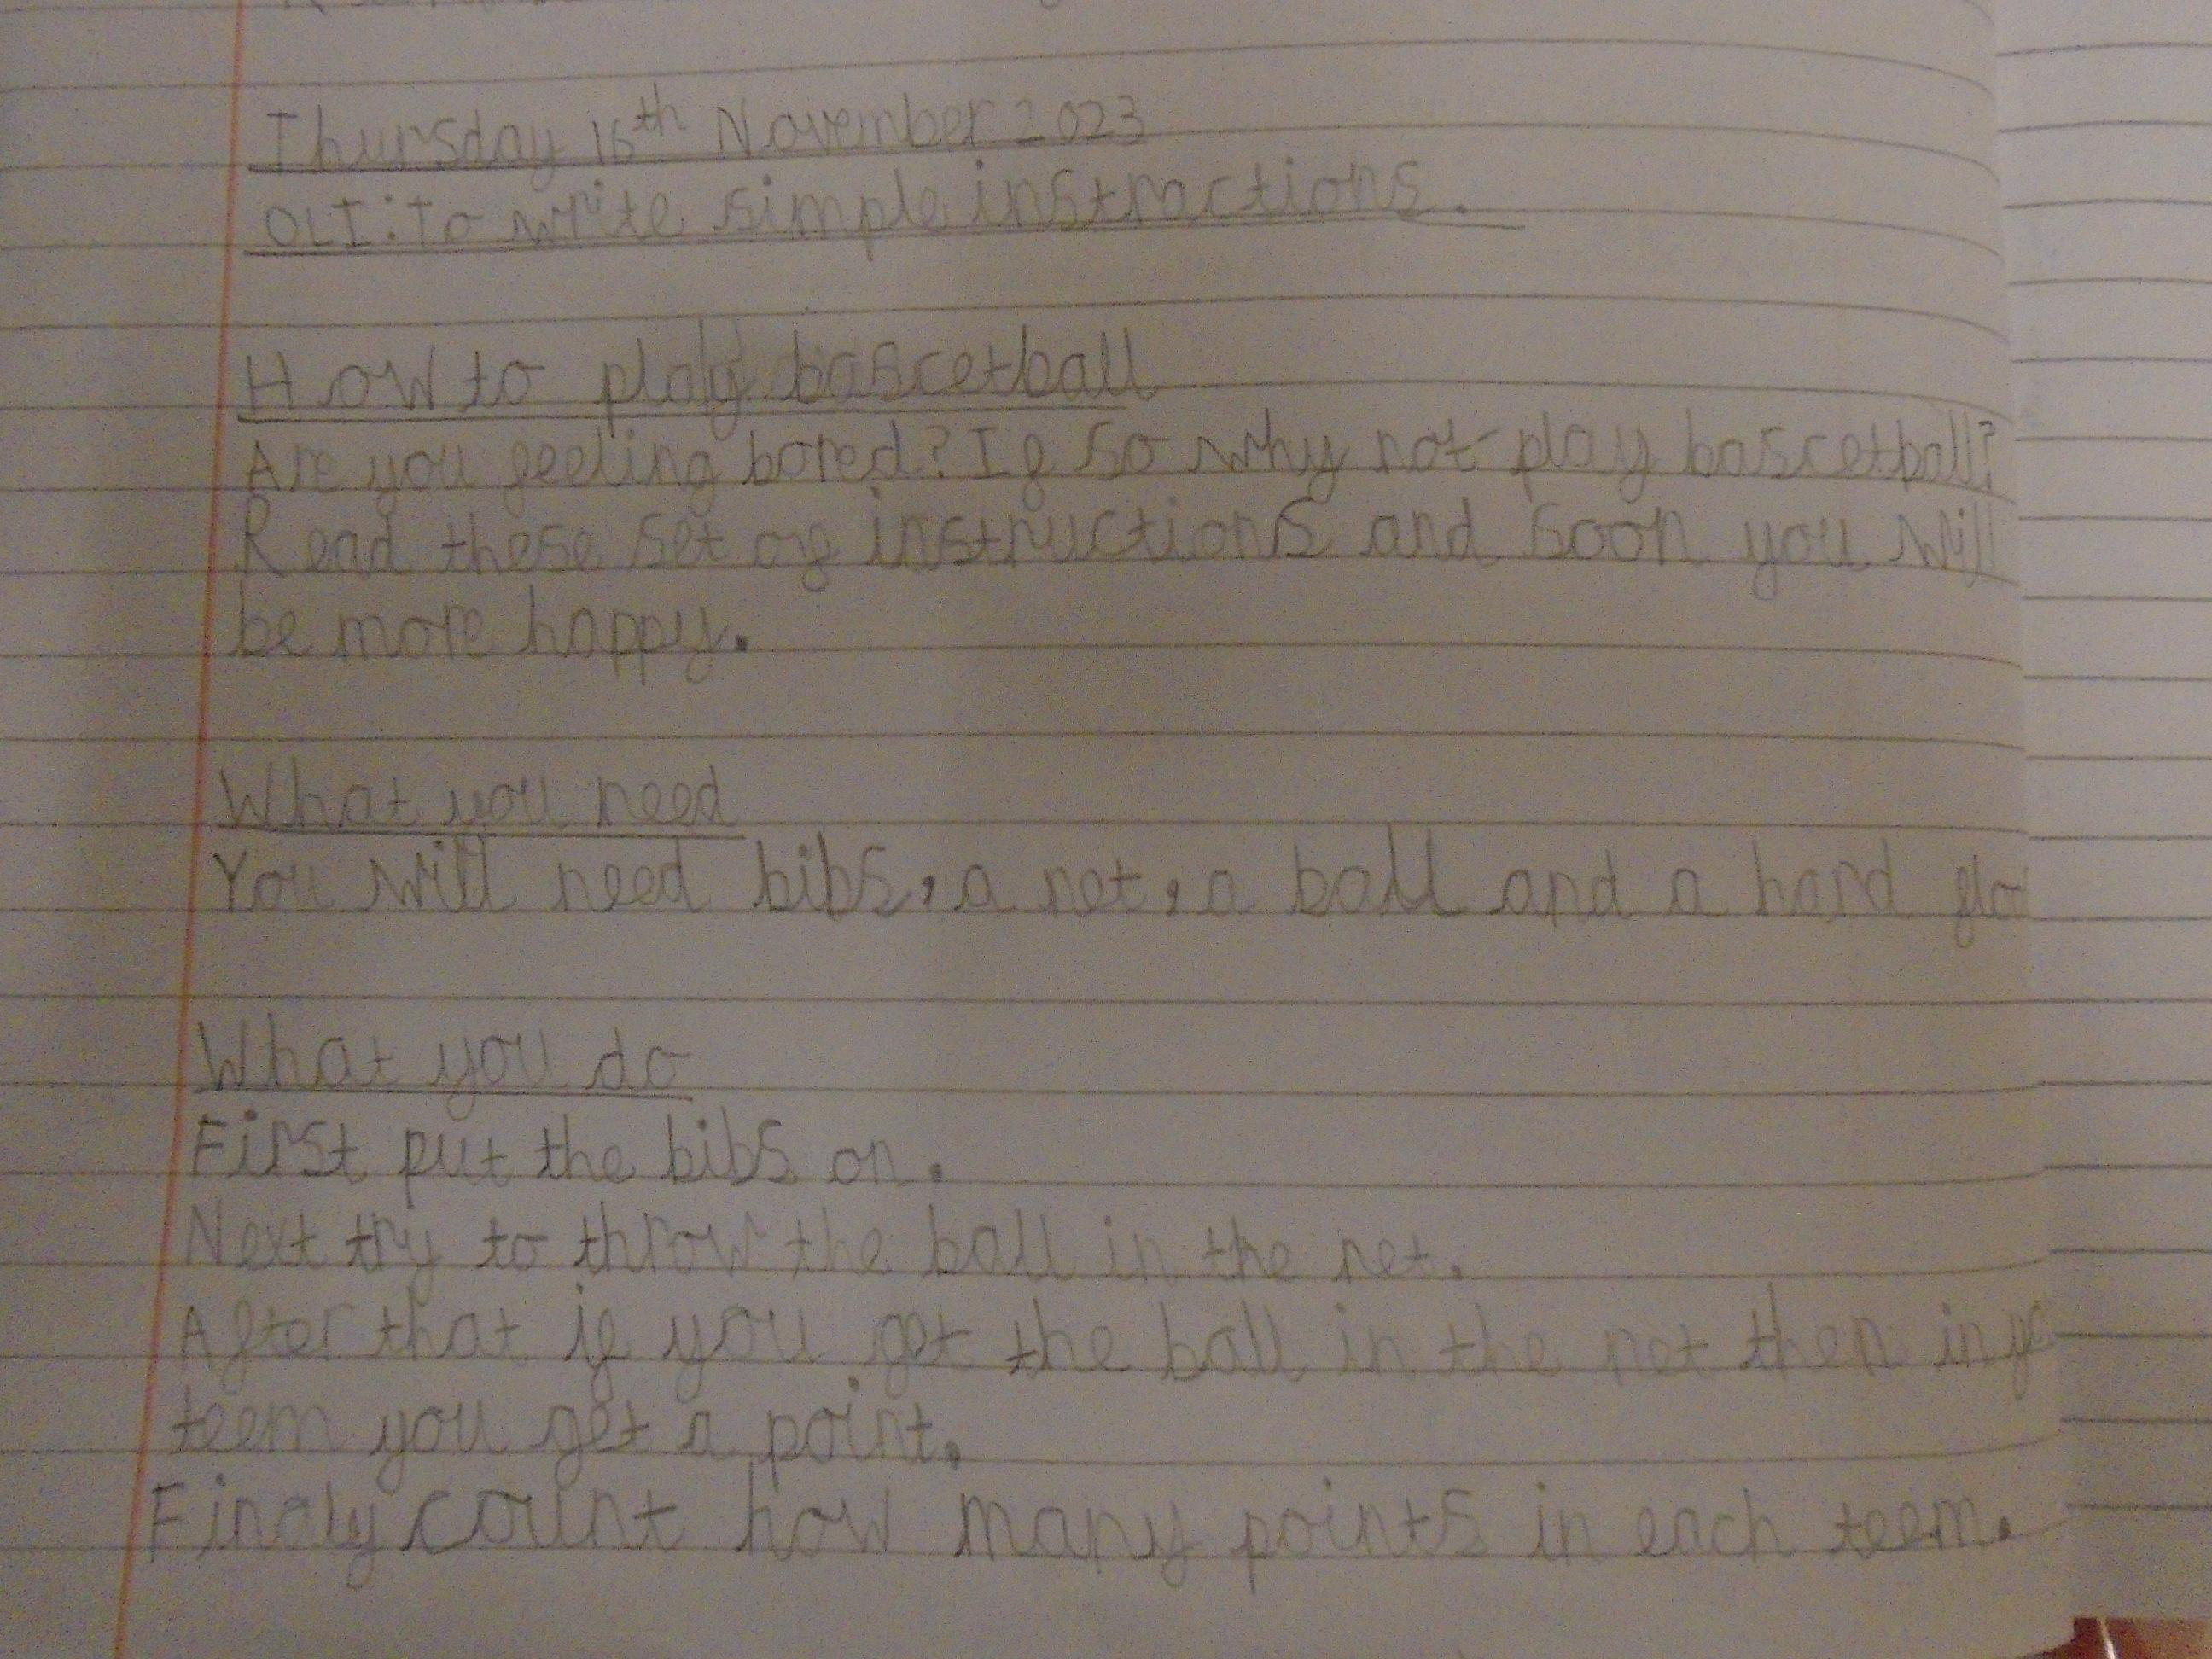 Thursday 16th November 2023
OLI: To write simple instractions.
How to play bascetball
Are you feeling bored? If so why not play bascetball?
Read these set of instructions and soon you will
be more happy.
What you need
You will need bibs, a net, a ball and a hard
What you do
First put the bibs on.
Next try to throw the ball in the net.
After that if you get the ball in the net then in
teem you get a point.
Finaly count how many points in each teem.